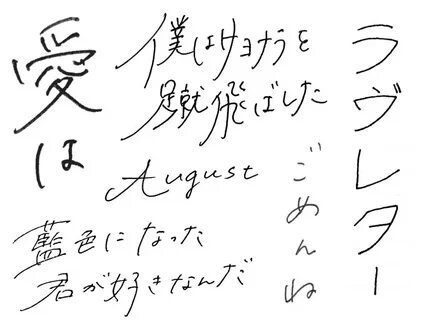 愛は
僕はサヨナラを
蹴飛ばした
August
ラヴレター
ごめんね
藍色になった
君が好きなんだ